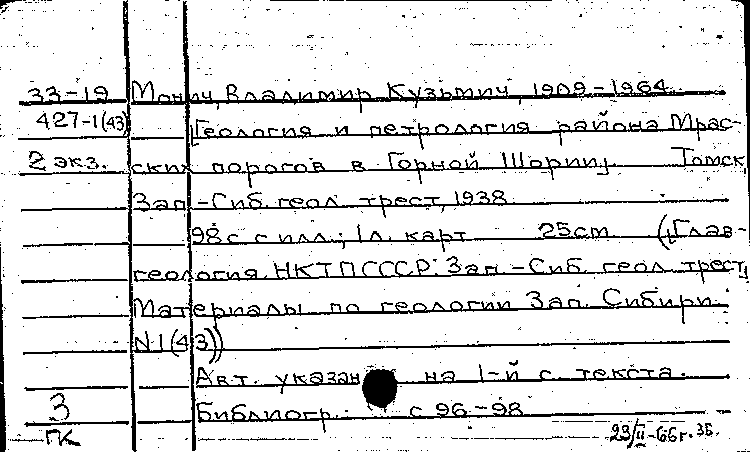 33-19 Монич, Владимир Кузьмич, 1909-1964.
427-1(43) Геология и петрология района Мрас-
2 экз. ских порогов в Горной Шории. Томск,
Зап.-Сиб. геол. трест, 1938.
98 с. с илл.; 1 л. карт. 25см. (Глав-
геология НКТП СССР. Зап.-Сиб. геол. трест,
Материалы по геологии Зап. Сибири.
N 1(43))
Авт. указан на 1-й с. текста.
3 Библиогр.: с 96-98
ГК 23/II-66г.